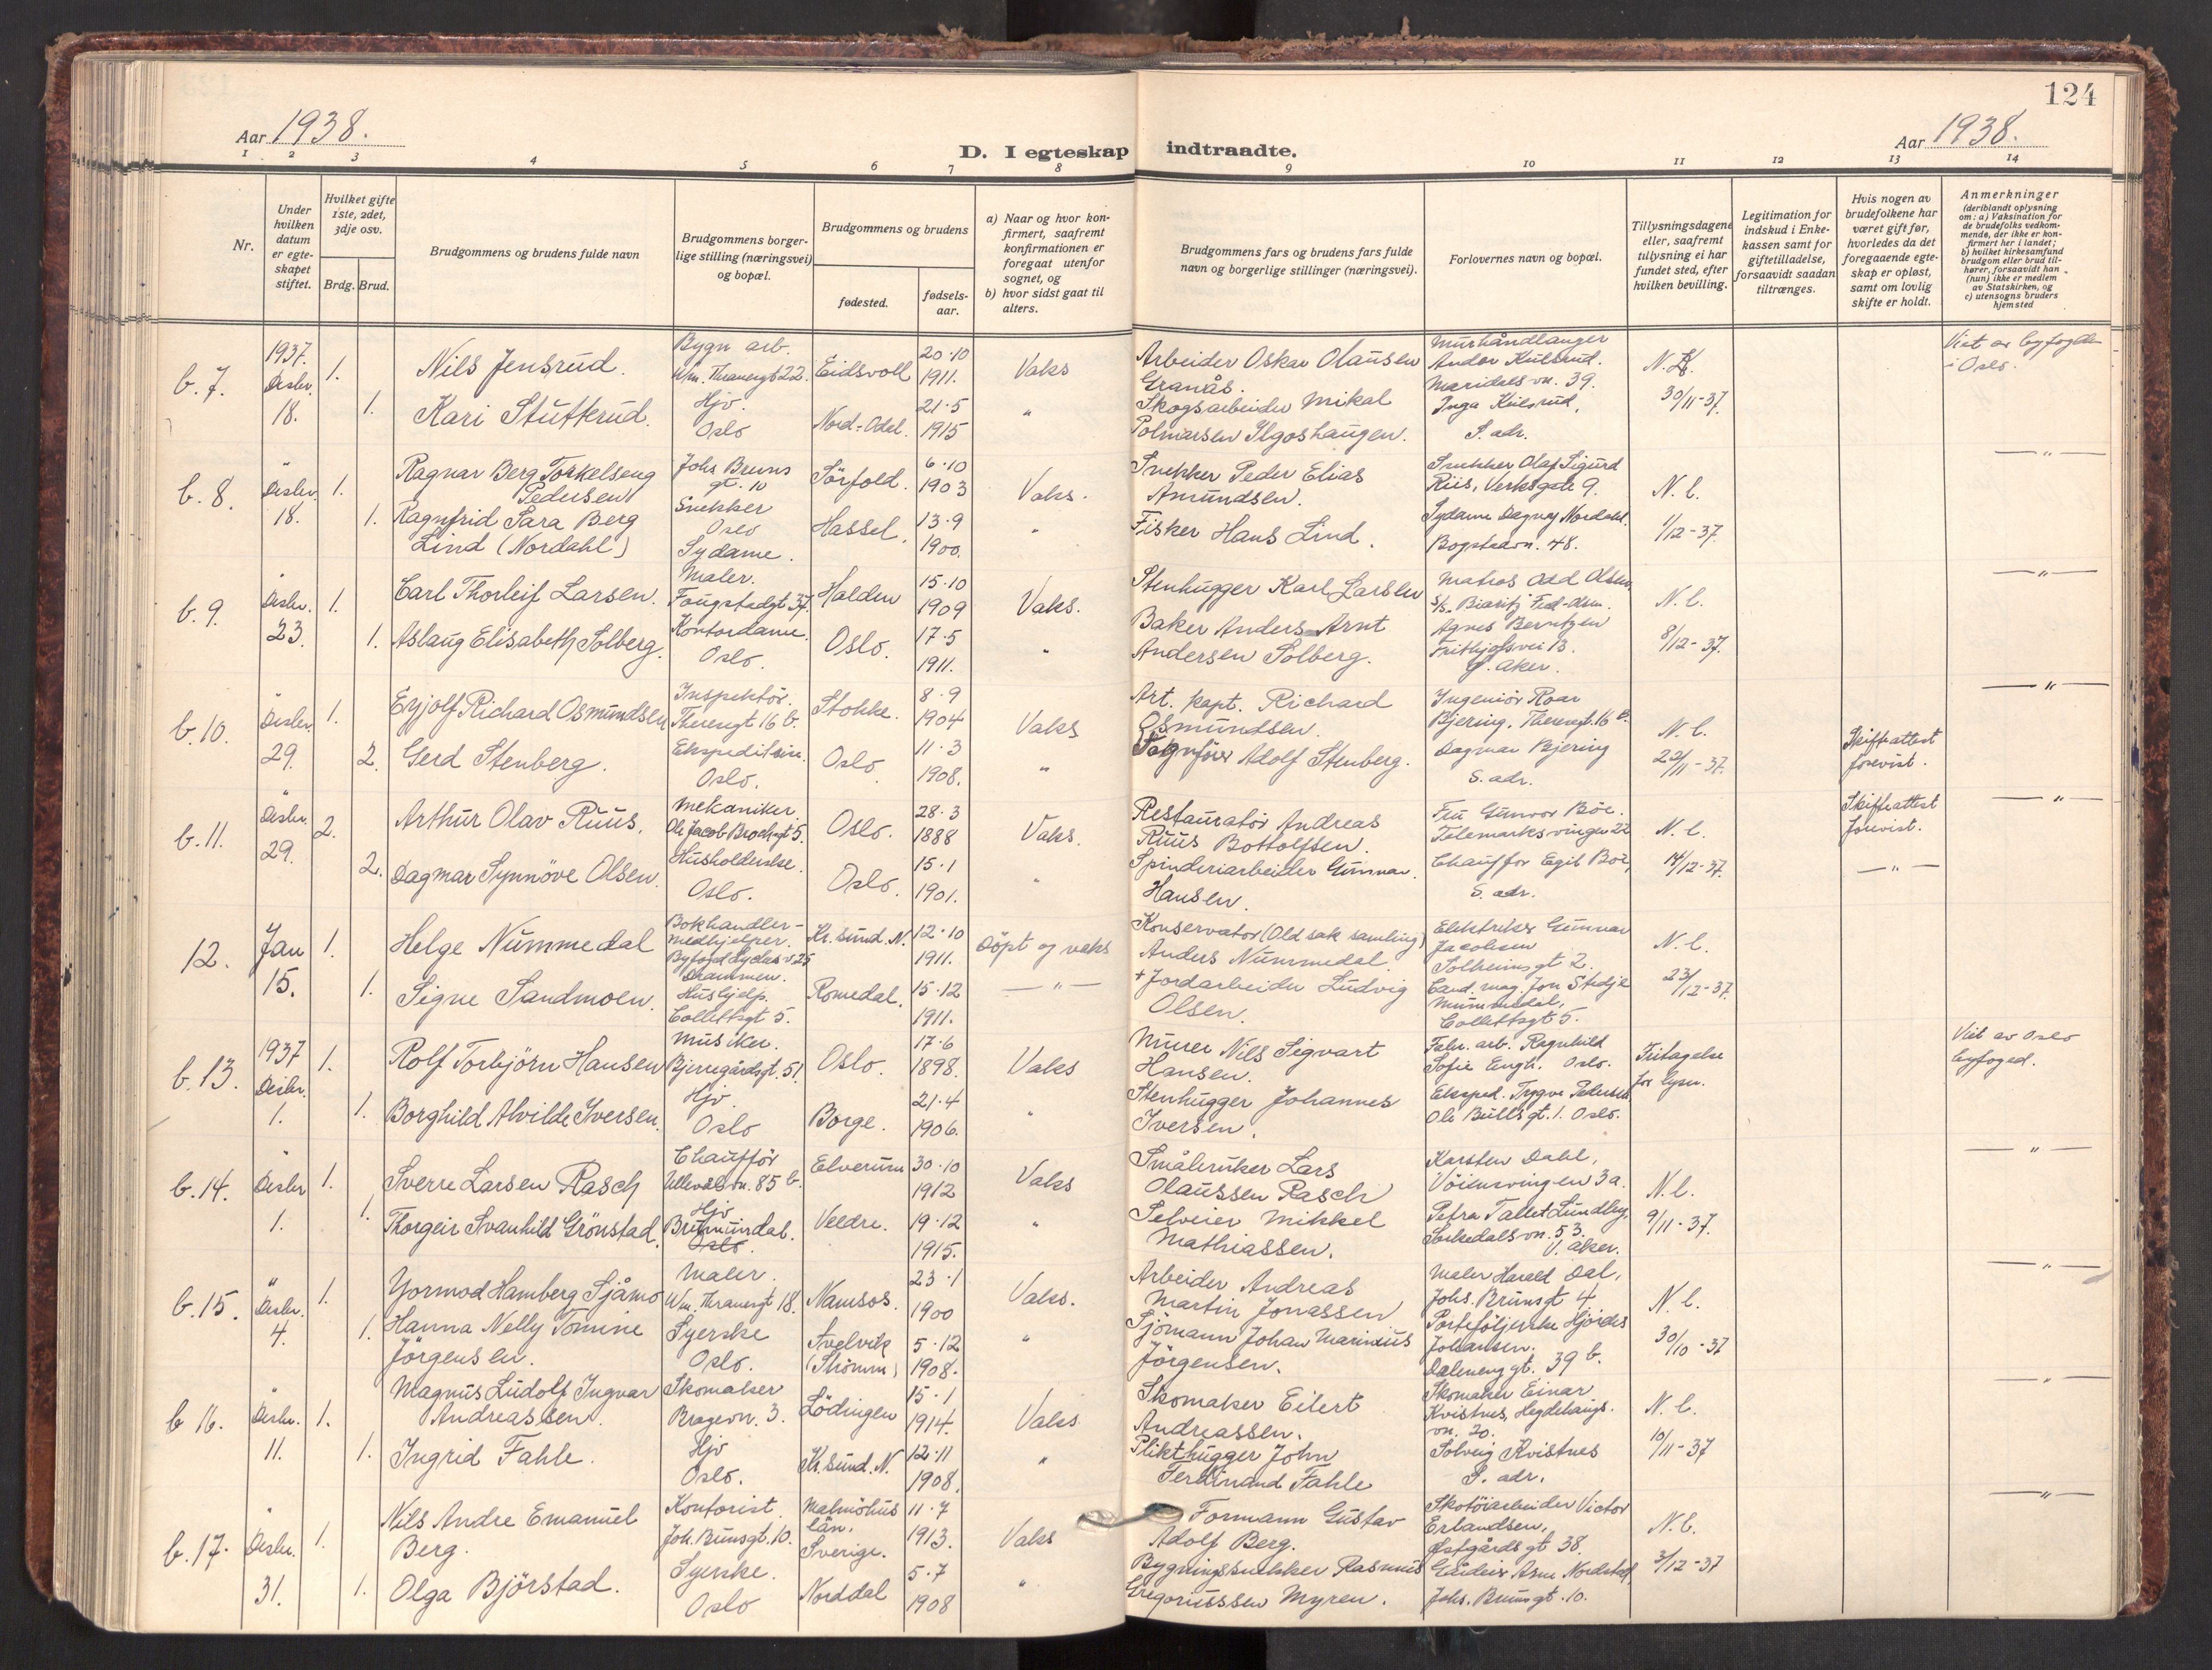 124
Aar 1938.
D. I egteskap indtraadte.
Aar 1938.
1 2 3 4 5 6 7 8 9 10 11 12 13 14
Nr.
Under hvilken datum er egteskapet stiftet.
Hvilket gifte 1ste, 2det, 3dje osv.
Brdg. Brud.
Brudgommens og brudens fulde navn
Brudgommens borgerlige stilling (næringsvei) og bopæl.
Brudgommens og brudens
fødested.
fødselsaar.
a) Naar og hvor konfirmert, saafremt konfirmationen er foregaat utenfor sognet, og
b) hvor sidst gaat til alters.
Brudgommens fars og brudens fars fulde navn og borgerlige stillinger (næringsvei).
Forlovernes navn og bopæl.
Tillysningsdagene eller, saafremt tillysning ei har fundet sted, efter hvilken bevilling.
Legitimation for indskud i Enkekassen samt for giftetilladelse, forsaavidt saadan tiltrænges.
Hvis nogen av brudefolkene har været gift før, hvorledes da det foregaaende egteskap er opløst, samt om lovlig skifte er holdt.
Anmerkninger
(deriblandt oplysning om: a) Vaksination for de brudefolks vedkommende, der ikke er konfirmert her i landet; b) hvilket kirkesamfund brudgom eller brud tilhører, forsaavidt han (hun) ikke er medlem av Statskirken, og c) utensogns bruders hjemsted
b. 7. 1937. Desbr. 18. 1. Nils Jensrud. Bygn arb. Wm. Thranesgt 22. Eidsvoll 20.10 1911. Vaks Arbeider Oskar Olaussen Granås. Murhåndlanger Andor Kulsrud. Maridalsvn. 39. N. b. 30/11-37. Viet av byfogden i Oslo.
1. Kari Stutkrud. Hjv. Oslo Nord-Odal. 21.5 1915 " Skogsarbeider Mikal Polmarsen Ilgoshaugen. Inga Kulsrud, S. adr.
b. 8. " Desbr. 18. 1. Ragnar Berg Torkelseng Pedersen Johs Bruns gt. 10 Snekker Sörfold. 6.10 1903 Vaks. Snekker Peder Elias Amundsen. Snekker Olaf Sigurd Riis, Verksgate 9. N. b. 1/12-37. — " —
1. Ragnfrid Sara Berg Lind (Nordahl) Oslo Sydame. Hassel. 13.9 1900. " Fisker Hans Lind. Sydame Dagny Nordahl. Bogstadvn. 48.
b. 9. " Desbr. 23. 1. Carl Thorleif Larsen. Maler. Fougstadgt 37. Halden 15.10 1909 Vaks. Stenhugger Karl Larsen Matros Odd Olsen, S/S. Biaritz Fred-Olsen. N. b. 8/12-37. — " —
1. Aslaug Elisabeth Solberg. Kontordame. Oslo. Oslo. 17.5 1911. " Baker Anders Arnt Andersen Solberg. Agnes Berntzen Frithjofsvei 13. Ø. Aker.
b. 10. " Desbr. 29. 1. Eyjolf Richard Osmundsen Inspektör. Theresgt 16 b. Stokke. 8.9 1904 Vaks Art. Kapt. Richard Osmundsen. Ingeniör Roar Bjering. Theresgt. 16 b. N. b. 22/11-37. — " —
2. Gerd Stenberg. Ekspeditrise. Oslo. Oslo. 11.3 1908. " Adolf Stenberg. Dagmar Bjering S. adr. Skifteattest forevist.
b. 11. " Desbr. 29. 2. Arthur Olav Ruus. Mekaniker. Ole Jacob Brochsgt 5. Oslo. 28.3 1888 Vaks. Restauratör Andreas Ruus Bottolfsen. Fru Gunvor Böe. Telemarksvingen 22 N. b. 14/12-37. Skifteattest forevist. — " —
2. Dagmar Synnöve Olsen. Husholderske. Oslo. Oslo. 15.1 1901. " Spinderiarbeider Gunnar Hansen. Chauffør Egil Boe, S. adr. — " —
12. Jan 15. 1. Helge Nummedal Bokhandler-medhjelper. Drammen. Kr.sund. N. 12.10 1911. Döpt og vaks Konservator (Old sak samling) Anders Nummedal. Elektriker Gunnar Jacobsen Solheimsgt 2. N. b. 23/12-37.
1. Signe Sandmoen. Hushjelp. Collettsgt 5. Romedal. 15.12 1911. — " — + Jordarbeider Ludvig Olsen. Cand. mag. Jon Stedje Nummedal, Collettsgt 5.
b. 13. 1937 Desbr. 1. 1. Rolf Torbjörn Hansen Musiker. Bjerregårdsgt. 51. Oslo. 17.6 1898. Vaks Murer Nils Sigvart Hansen. Fabr. arb. Ragnhild Sofie Engh. Oslo. Fritagelse for lysn. Viet av Oslo byfoged.
1. Borghild Alvilde Iversen. Hjv. Oslo Borge. 21.4 1906. " Stenhugger Johannes Iversen. Eksped. Trygve Pedersen Ole Bullsgt. 1. Oslo.
b. 14. " Desbr 1. 1. Sverre Larsen Rasch Chauffør Ullevålsvn. 85 b. Elverum 30.10 1912 Vaks Småbruker Lars Olaussen Rasch Karsten Dahl, Vöiensvingen 3a. N. b. 9/11-37. — " —
1. Thorgeir Svanhild Grönstad. Hjv Brumunddal. Oslo. Veldre. 19.12 1915. " Selveier Mikkel Mathiassen. Petra Tallet Lundby, Sörkedalsvn. 53. V. Aker.
b. 15. " Desbr. 4. 1. Yormod Hamberg Sjåmo Maler. Wm. Thranesgt 18. Namsos. 23.1 1900 Vaks. Arbeider Andreas Martin Jonassen Maler Harald Dal, Johs. Brunsgt 4 N. b. 30/10-37 — " —
1. Hanna Nelly Tomine Jörgensen. Syerske Oslo. Svelvik (Strömm) 5.12 1908. " Sjömann Johan Marinius Jörgensen. Porteföljerske Hjördis Johansen. Dælenenggt. 39 b.
b 16. " Desbr. 11. 1. Magnus Ludolf Ingvar Andreassen. Skomaker Bragevn. 3. Lödingen 15.1 1914. Vaks Skomaker Eilert Andreassen. Skomaker Einar Kvistnes, Hegdehaugs. vn. 20. N. b. 10/11-37 "
1. Ingrid Fahle. Hjv Oslo. Kr.sund. N. 12.11 1908. " Plikthugger John Ferdinand Fahle Solveig Kvistnes S. adr.
b. 17. " Desbr. 31. 1. Nils Andre Emanuel Berg. Kontorist. Joh. Brunsgt. 10. Malmöhus län, Sverige. 11.7 1913. Vaks Formann Gustav Adolf Berg. Skotöiarbeider Victor Erlandsen, Østgårdsgt 38. N. b. 3/12-37 — " —
1. Olga Björstad. Syerske. Oslo Norddal 5.7 1908 " Bygningssnekker Rasmus Gregoriussen Myren. Arne Nordstad, Johs. Brunsgt. 10.